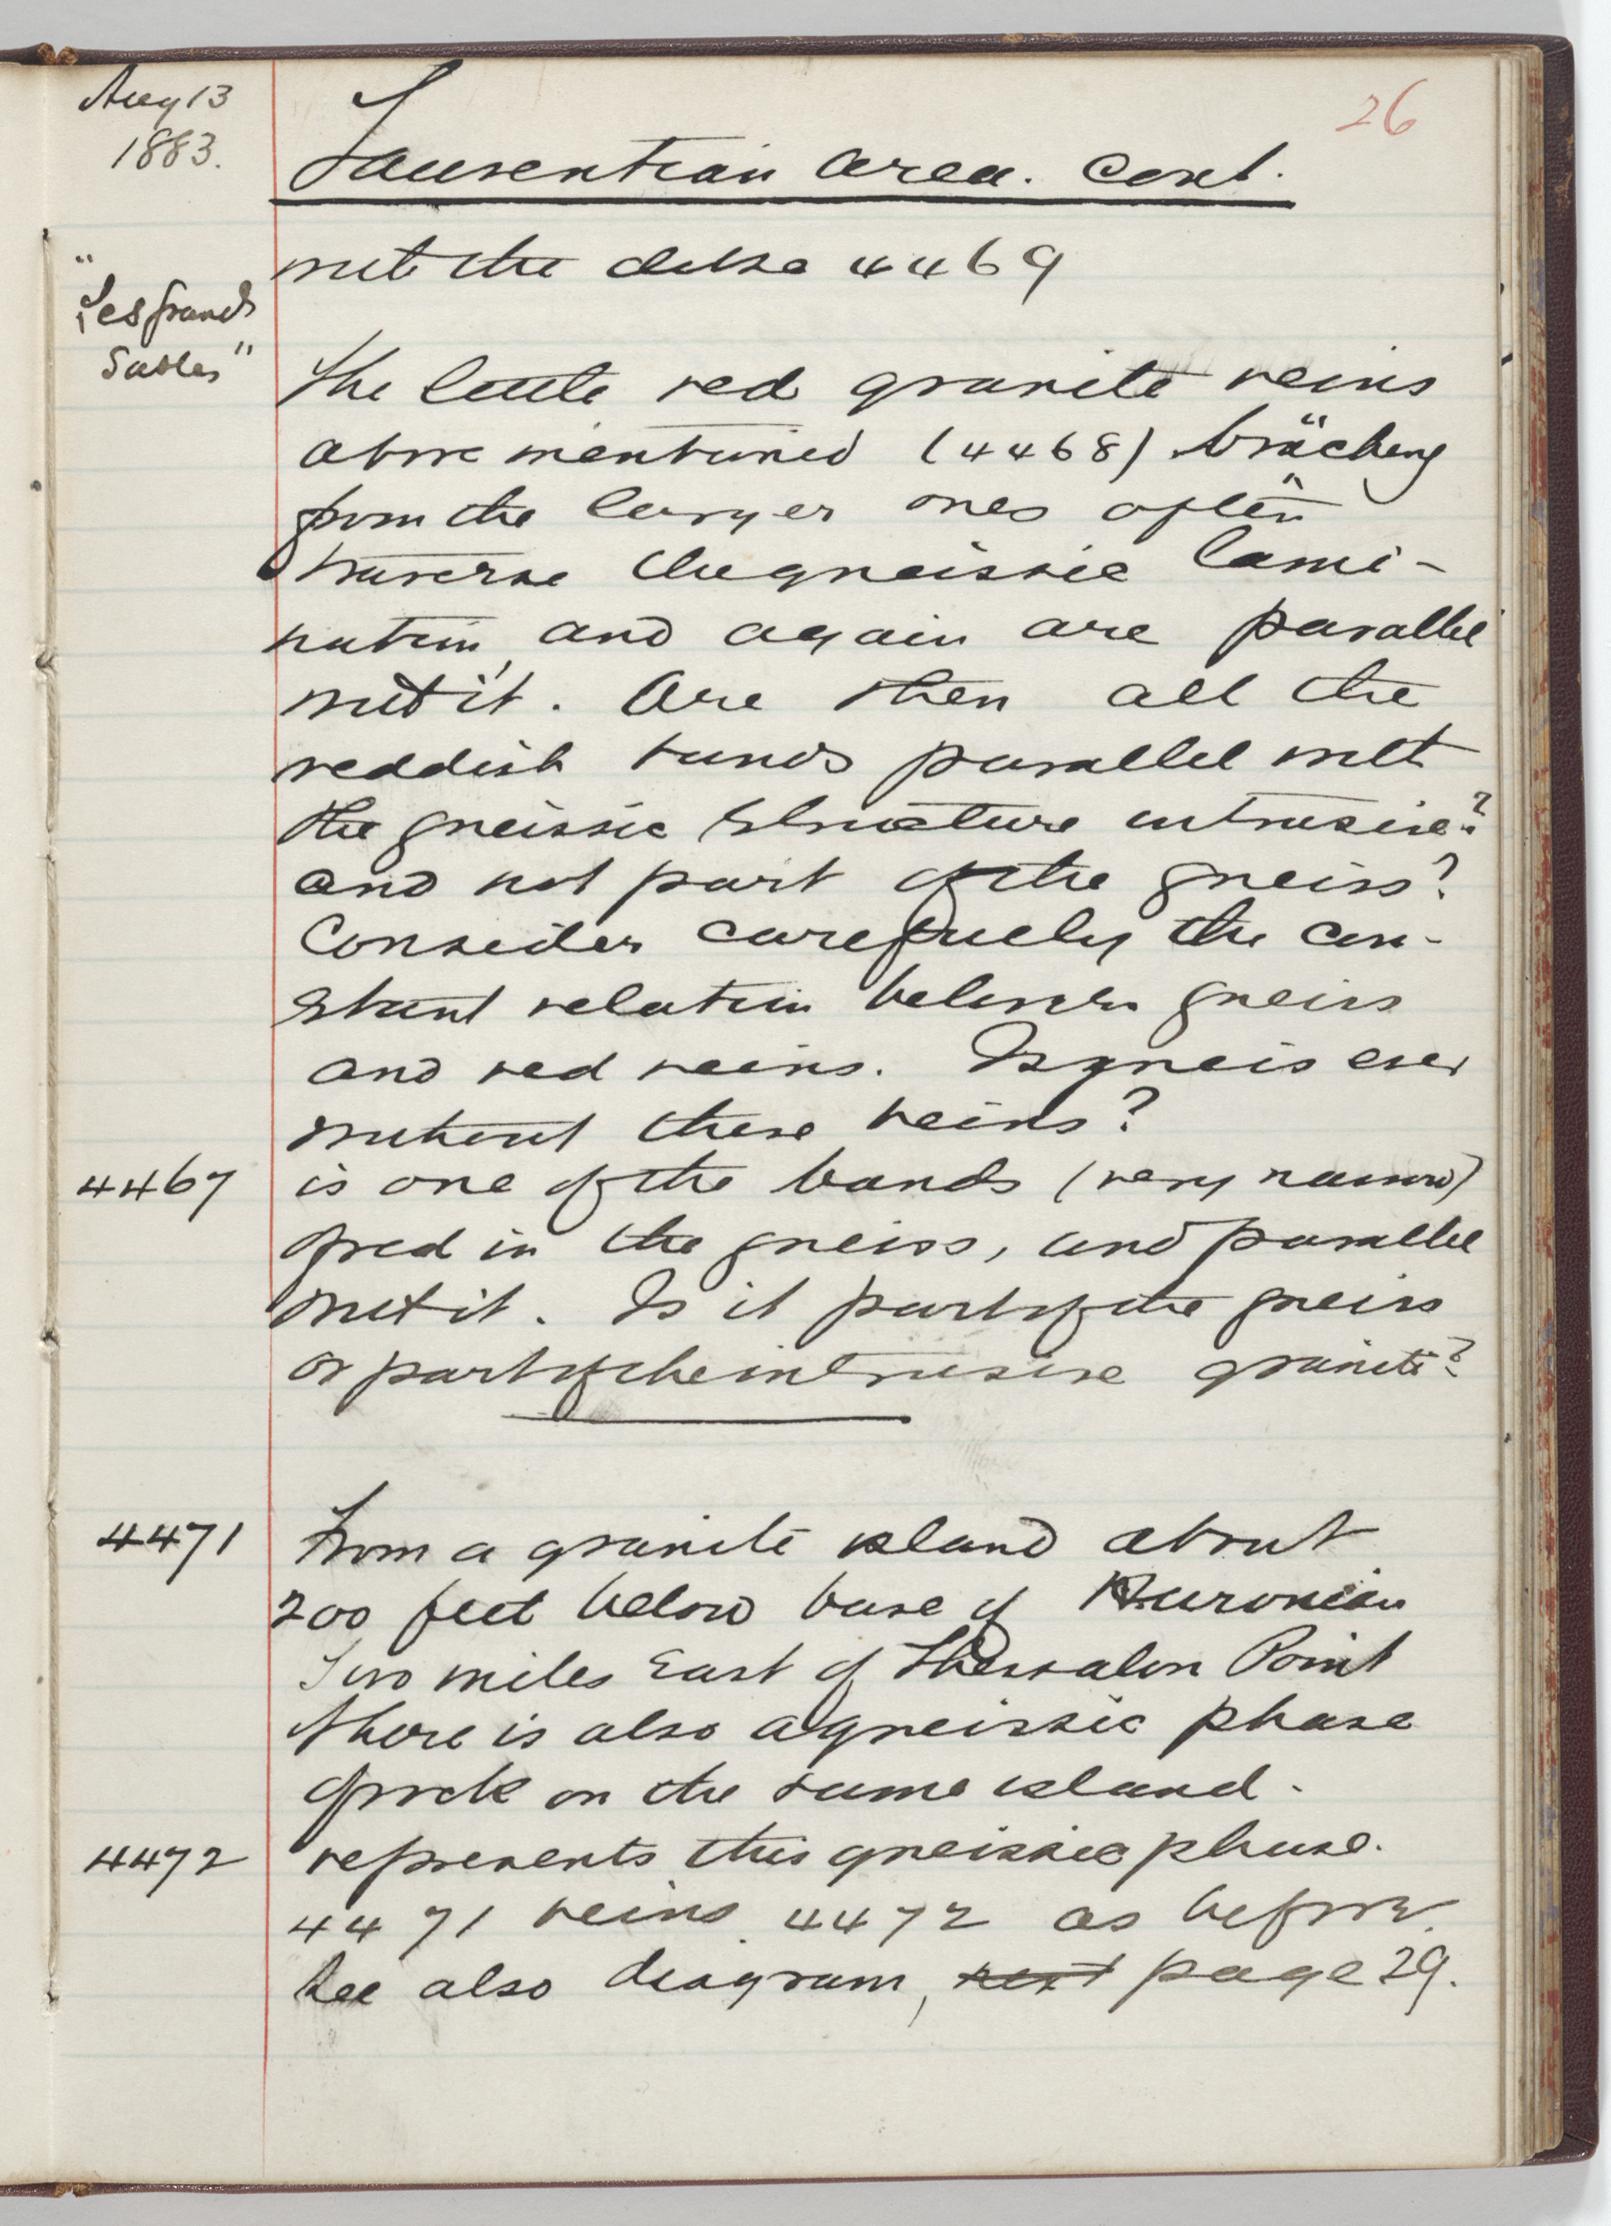 Aug 13
1883.
26
Laurentian area. Cont.
with the dike 4469
"Les Grands
Sables"
The little red granite veins
above mentioned (4468) bräching
from the larger ones often
traverse the gneissic lami-
nation, and again are parallel
with it. Are then all the
reddish bands parallel with
the gneissic structure intrusive?
and not part of the gneiss?
Consider carefully the con-
stant relation between gneiss
and red veins. Is gneis ever
without these veins?
4467 is one of the bands (very narrow)
of red in the gneiss, and parallel
with it. Is it part of the gneiss
or part of the intrusive granite?
4471 From a granite island about
200 feet below base of Huronian
Two miles East of Thessalon Point
There is also a gneissic phase
of rock on the same island.
4472 represents this gneissic phase.
4471 veins 4472 as before.
See also diagram, next page 29.